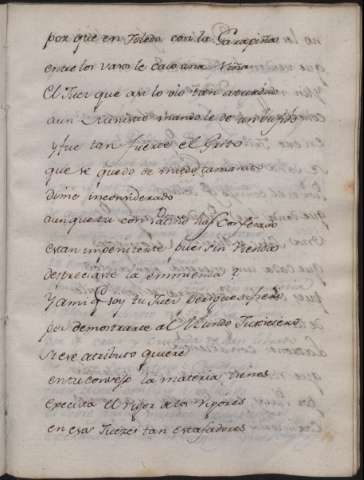 por que en Toledo con la Garapiña
entre los vasos le caio una Niña
El Juez que asi lo vio tan aturdido
a un Ministro mando le de un bufido
y fue tan fuerte el Grito
que se quedo de miedo tamanito
dime inconsiderado
aunque tu con
estan impenitente pues sin rienda
desprecias la enmienda q
y a mi q soy tu Juez
por demostrarte al Mundo Justiciero
si ese atributo quiere
en tu consejo la materia tienes
executa el rigor de los rigores
en esos Juezes tan estafadores